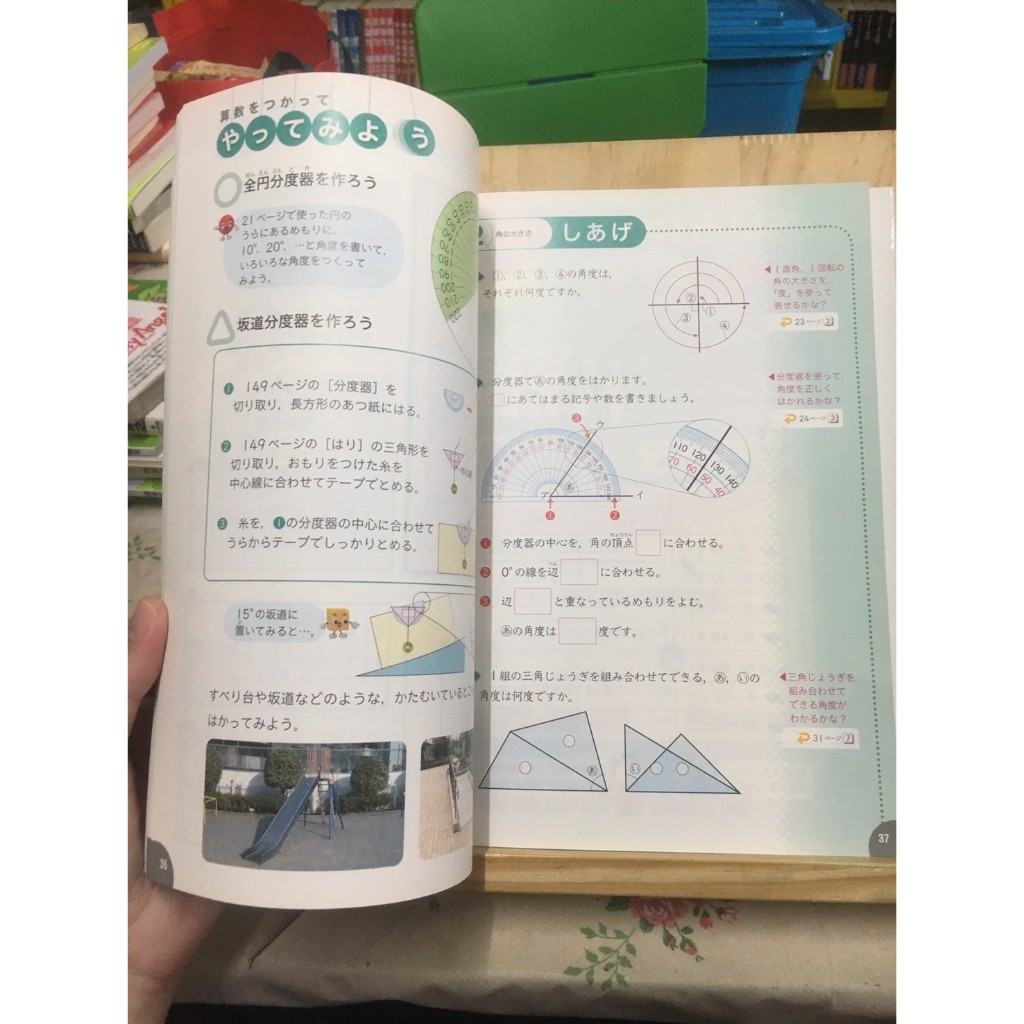 算数をつかって
やってみよう
全円分度器を作ろう
21ページで使った円の
うらにあるめもりに、
10°, 20°, …と角度を書いて,
いろいろな角度をつくって
みよう。
坂道分度器を作ろう
1 149ページの[分度器]を
切り取り, 長方形のあつ紙にはる。
2 149ページの[はり]の三角形を
切り取り, おもりをつけた糸を
中心線に合わせてテープでとめる。
3 糸を, 1の分度器の中心に合わせて
うらからテープでしっかりとめる。
15°の坂道に
置いてみると…。
すべり台や坂道などのような, かたむいている
はかってみよう。
36
170
180
190
200
210
220
2 角の大きさ しあげ
①, ②, ③, ④の角度は,
それぞれ何度ですか。
② ①
③ ④
◀1直角, 1回転の
角の大きさを,
「度」を使って
表せるかな?
23ページ2
分度器であの角度をはかります。
□にあてはまる記号や数を書きましょう。
◀分度器を使って,
角度を正しく
はかれるかな?
24ページ3
3 ウ
110 120 130 140
70 60 50 40
ア あ イ
1 2
1 分度器の中心を, 角の頂点□に合わせる。
2 0°の線を辺□に合わせる。
3 辺□と重なっているめもりをよむ。
あの角度は□度です。
1組の三角じょうぎを組み合わせてできる, あ, いの
角度は何度ですか。
◀三角じょうぎを
組み合わせて
できる角度が
わかるかな?
31ページ7
あ い
37